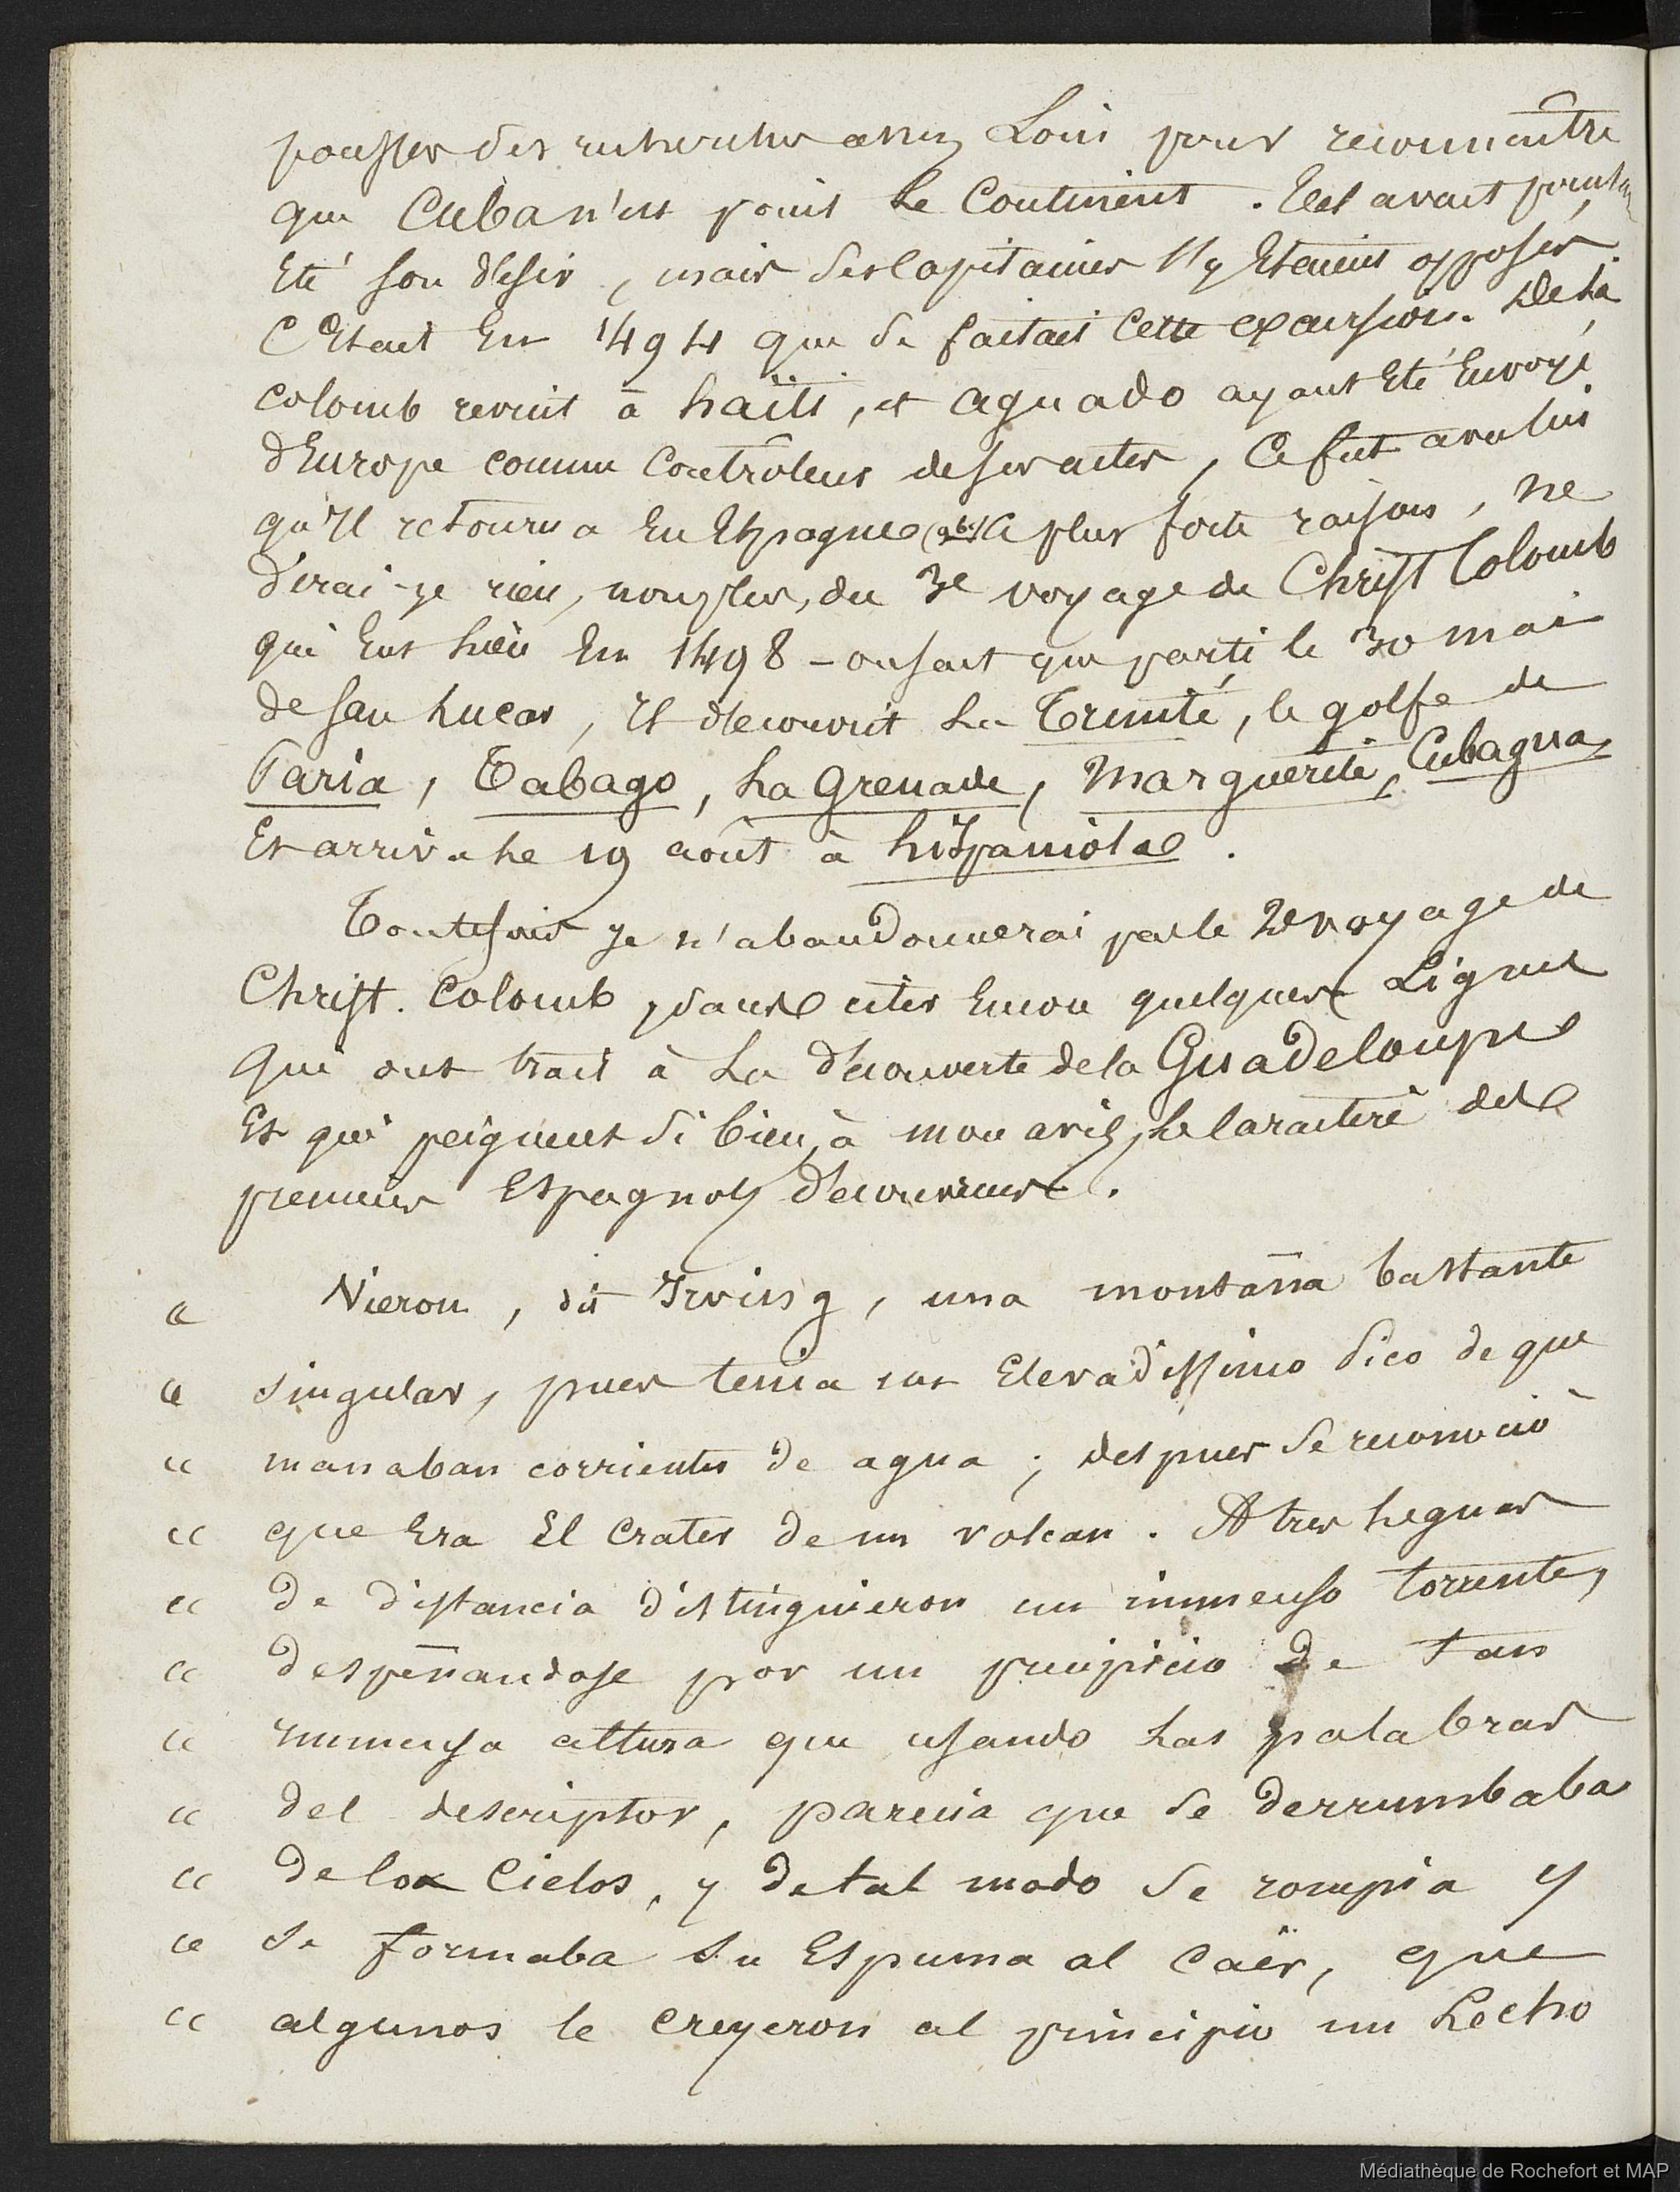 pousser des recherches assez Loin pour reconnaître
que Cuba n'est point Le Continent. Tel avait pourtant
Eté son désir, mais ses Capitaines s'y Etaient opposés.
C'Etait En 1494 que se faisait Cette excursion. De là,
Colomb revint à haïti, et aguado ayant Eté Envoyé
d'Europe comme Contrôleur de ses actes, Ce fut avec lui
qu'Il retourna En Espagne. (abc) A plus forte raison, ne
dirai-je rien, non plus, du 3e voyage de Christ Colomb
qui Eut Lieu En 1498 - on sait que parti le 30 mai
de San Lucar, Il découvrit La Trinité, le golfe de
Paria, Tabago, La Grenade, Marguerite, Cubagua,
Et arriva Le 19 août à hispaniola.
Toutefois je n'abandonnerai pas le 2e voyage de
Christ. Colomb, sans citer Encore quelques Lignes
Qui ont trait à La découverte de la Guadeloupe
Et qui peignent si bien, à mon avis, Le Caractère des
premiers Espagnols découvreurs.
« Vieron, dit Irving, una montaña bastante
« singular, pues tenia un Elevadissimo Pico de que
« manaban corrientes de agua ; despues se reconoció
« que Era El Crater de un volcan. A tres Leguas
« de distancia distinguieron un immenso torrente,
« despeñandose por un precipicio de tan
« immensa altura que usando Las palabras
« del descriptor, parecia que se derrumbaba
« de los Cielos, y de tal modo se rompia y
« se formaba su Espuma al Caër, que
« algunos le Creyeron al principio un Lecho
Médiathèque de Rochefort et MAP